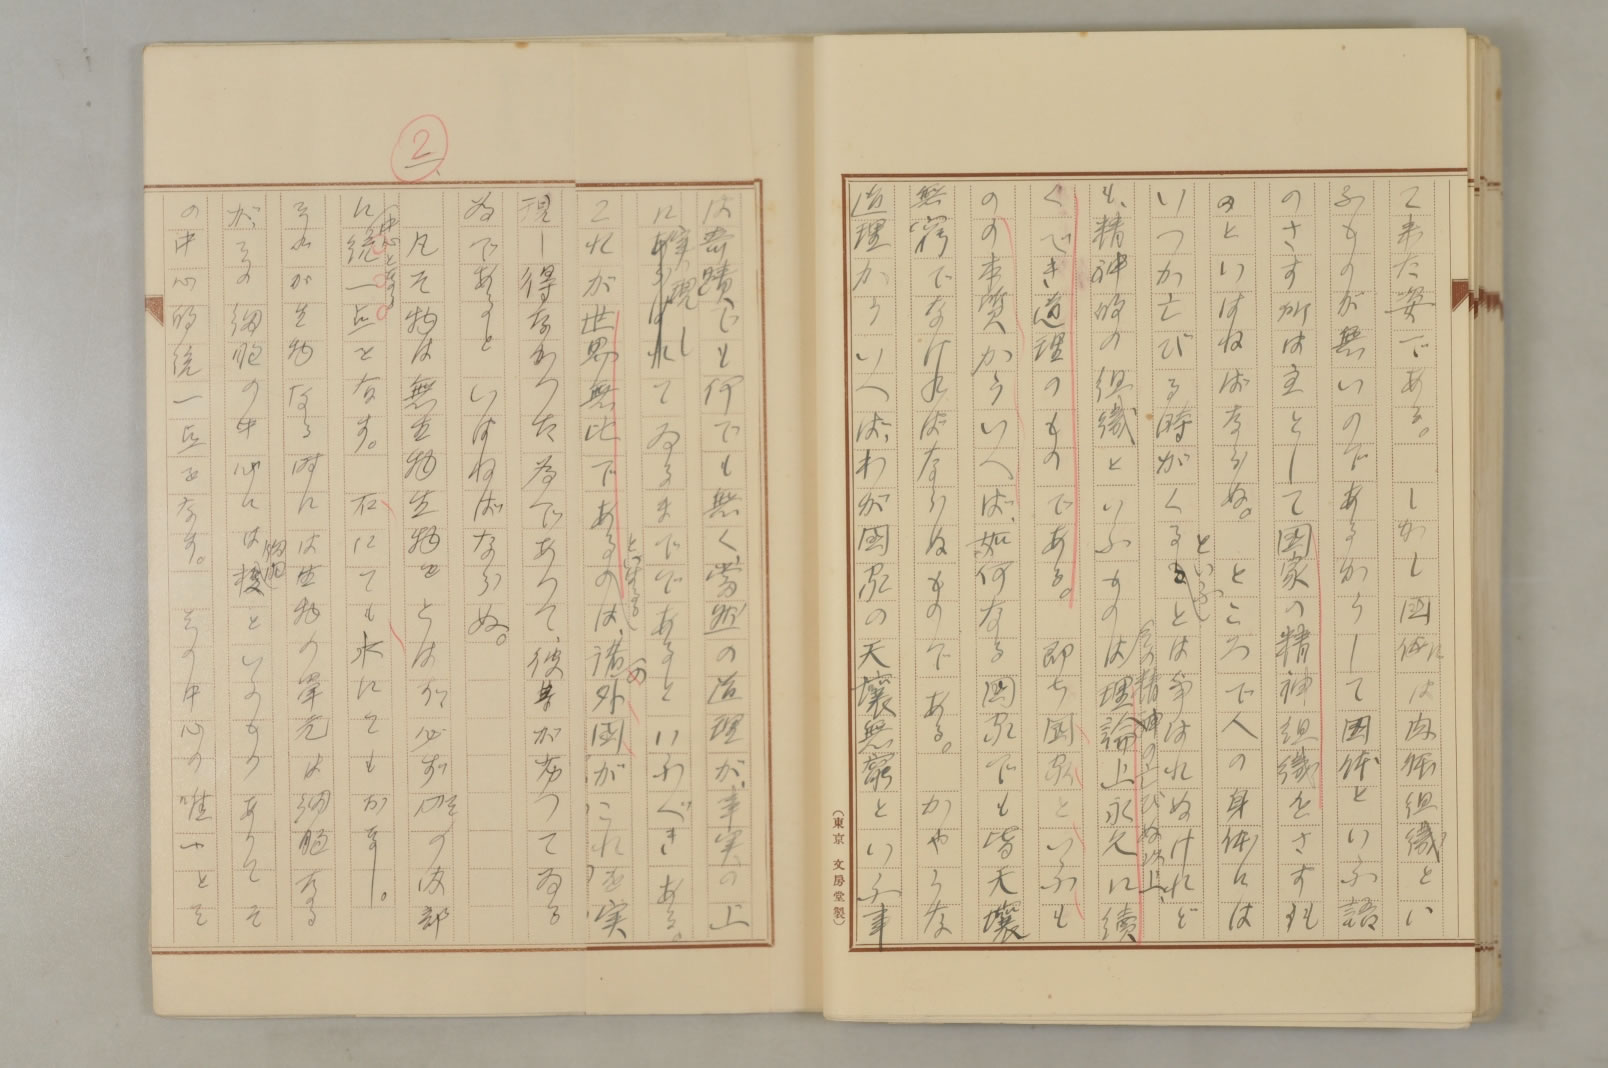 て来た姿である。 しかし国体には肉体組織とい
ふものが無いのであるからして国体といふ語
のさす所は主として国家の精神組織をさすも
のといはねばならぬ。 ところで人の身体には
いつか亡びる時がくることは争はれぬけれど
といふ
も、精神的の組織といふものは理論上永久に続
その精神の亡びぬ以上、
くべき道理のものである。 即ち国家といふも
のの本質からいへば、如何なる国家でも皆天壌
無窮でなければならぬものである。 かやうな
道理からいへば、わが国家の天壌無窮といふ事
(東京 文房堂製)
は奇蹟でも何でも無く、当然の道理が、事実の上
に実現し
あらはれてゐるまでであるといふべきある。
とすべき
これが世界無比であるのは、諸外国がこれを実
の
現し得なかつた為であつて、彼等が劣つてゐる
為であるといはねばならぬ。
2
凡そ物は無生物生物をとはず必ず の内部
に統一点を有す。 石にても水にてもか し。
中心となる
それが生物なる時には生物の単元は細胞なる
がその細胞の中心には核といふものありてそ
細胞
の中心的統一点をなす。 その中心の唯一とそ